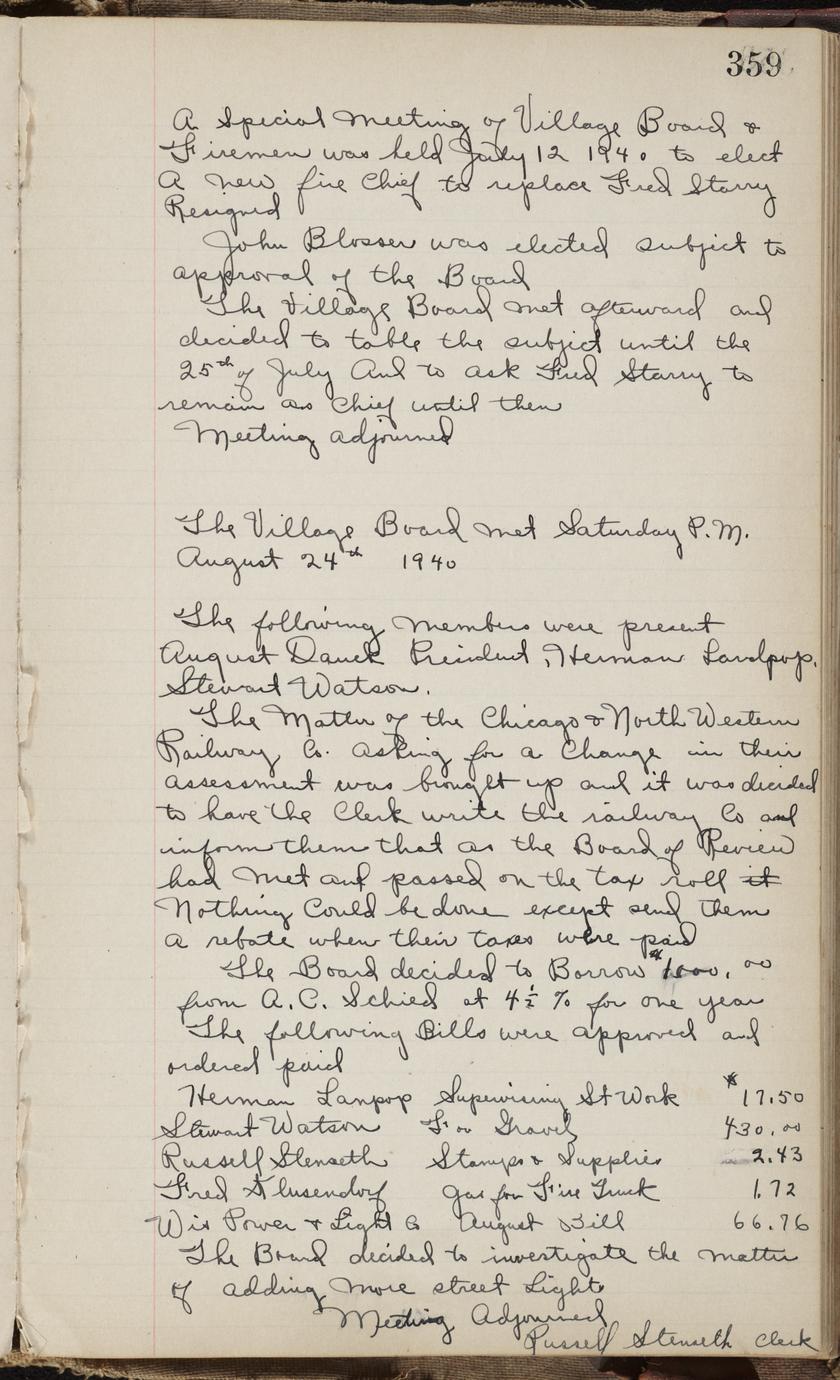 359
A Special Meeting of Village Board &
Firemen was held July 12 1940 to elect
A new fire Chief to replace Fred Starry
Resigned
John Blosser was elected subject to
approval of the Board
The Village Board met afterward and
decided to table the subject until the
25th of July And to ask Fred Starry to
remain as Chief until then
Meeting adjourned
The Village Board met Saturday P.M.
August 24th 1940
The following members were present
August Dauck President, Herman Landpop,
Stewart Watson.
The Matter of the Chicago & North Western
Railway Co. asking for a Change in their
assessment was brought up and it was decided
to have the Clerk write the railway Co and
inform them that as the Board of Review
had met and passed on the tax roll it
Nothing Could be done except send them
a rebate when their taxes were paid
The Board decided to Borrow $1000.00
from A.C. Schied at 4 1/2 % for one year
The following Bills were approved and
ordered paid
Herman Lanpop Supervising St Work $17.50
Stewart Watson For Gravel 430.00
Russell Stenseth Stamps & Supplies 2.43
Fred Klusendorf gas for Fire Truck 1.72
Wis Power & Light Co August Bill 66.76
The Board decided to investigate the matter
of adding more street lights
Meeting Adjourned
Russell Stenseth Clerk